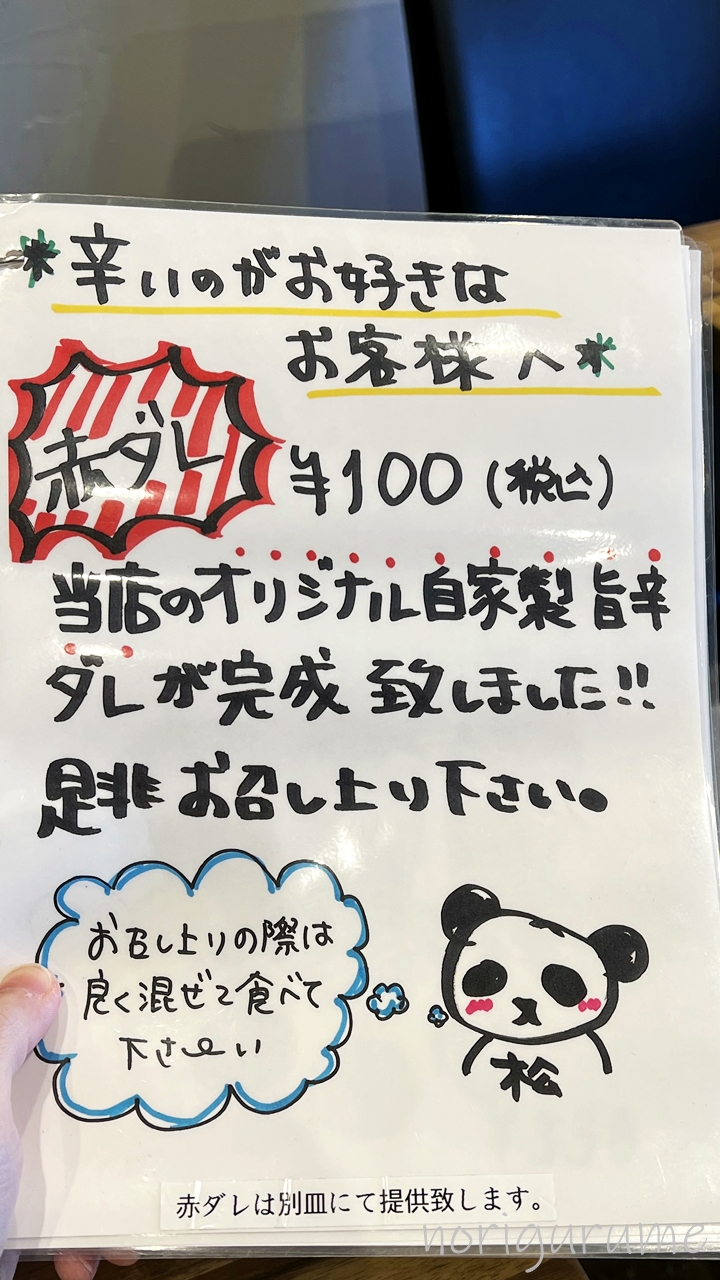 *辛いのがお好きな
お客様へ*
赤ダレ
¥100(税込)
当店のオリジナル自家製旨辛
ダレが完成致しました!!
是非お召し上り下さい。
お召し上りの際は
良く混ぜて食べて
下さーい
松
赤ダレは別皿にて提供致します。
norigurume